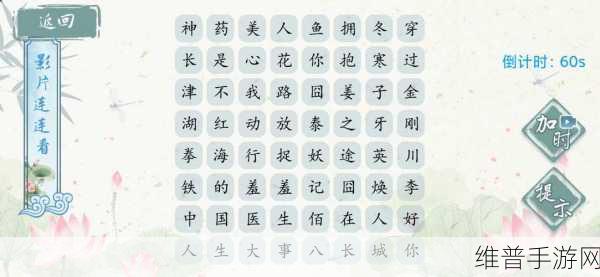 返回
影片连连看
神药美人鱼拥冬穿
长是心花你抱寒过
津不我路囧姜子金
湖红动放泰之牙刚
拳海行捉妖途英川
铁的羞羞记囧焕李
中国医生佰在人好
人生大事八长城你
倒计时：60s
加时
提示
维普手游网